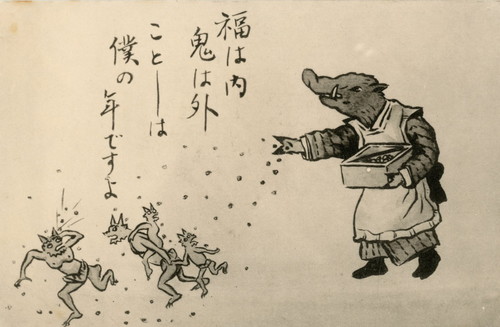 福は内
鬼は外
ことしは
僕の年ですよ